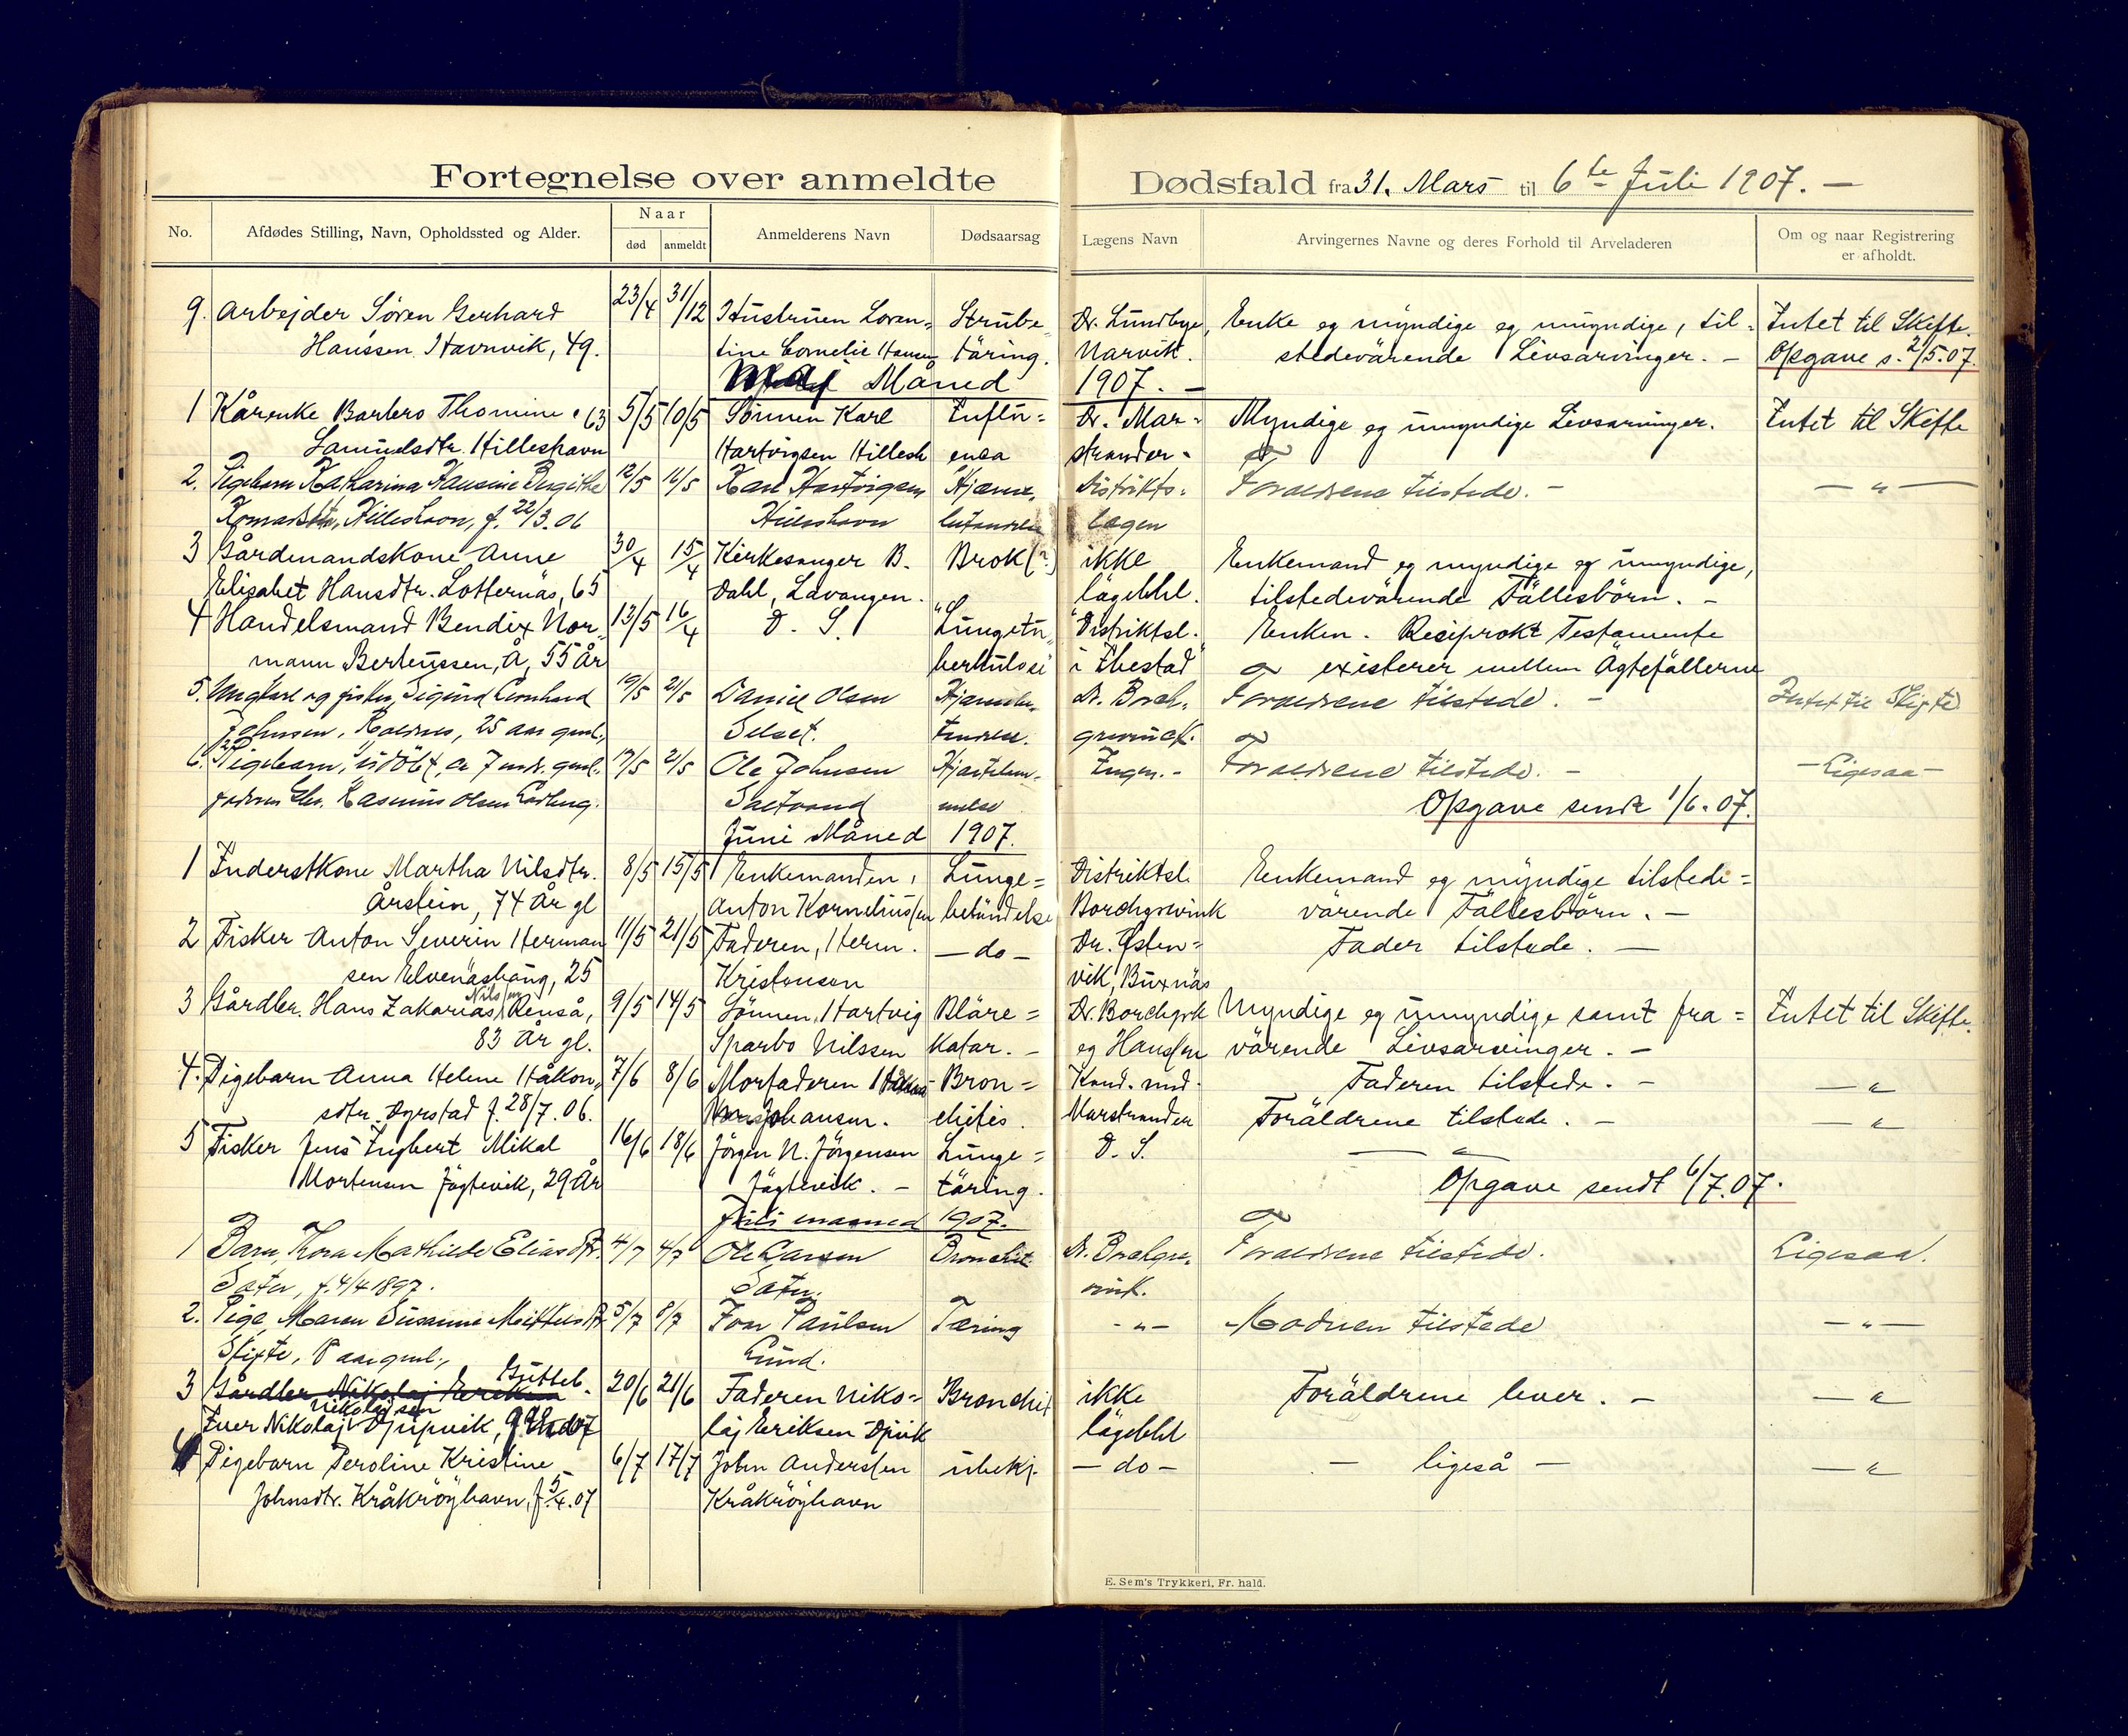 Fortegnelse over anmeldte Dødsfald fra 31. Mars til 6te Juli 1907. —
No. Afdødes Stilling, Navn, Opholdssted og Alder. Naar død anmeldt Anmelderens Navn Dødsaarsag Lægens Navn Arvingernes Navne og deres Forhold til Arveladeren Om og naar Registrering er afholdt.
9. Arbejder Sören Gerhard 23/4 31/12 Hustruen Loren= Strube Dr. Lundbye, Enke og myndige og umyndige, til= Intet til Skifte.
Hanssen Havnvik, 49. tine Cornelie Hansen täring. Narvik. stedevärende Livsarvinger. — Opgave s. 2/5.07.
Maj Måned 1907. —
1 Kårenke Barbro Thomine 63 5/5 10/5 Sönnen Karl Influ= Dr. Mar= Myndige og umyndige Livsarvinger. Intet til Skifte
Samuelsdtr. Hilleshavn Hartvigsen Hillesh enza strander.
2. Pigebarn Katharina Hansine Birgithe 12/5 16/5 Karl Hartvigsen Hjerne Distrikts= Forældrene tilstede. — — " —
Hilleshavn, f. 22/3.06 Hilleshavn lægen
3 Gårdmandskone Anne 30/4 15/4 Kirkesanger B. Brok(?) ikke Enkemand og myndige og umyndige,
Elisabet Hansdtr. Lotternäs, 65 Dahl, Lavangen. lägebhl. tilstedevärende Fällesbörn. —
4 Handelsmand Bendix Nor= 13/5 16/4 D. S. "Lungetu= "Distriktsl. Enken. Resiprokt Testamente
mann Berteussen, Å, 55 År berkulose i Ibestad" existerer mellem Ägtefällerne
5. Ungkarl og fisker, Sigurd Leonhard 19/5 21/5 Daniel Olsen Hjernebe= Dr. Borch= Forældrene tilstede. — Intet til Skifte
Johnsen, 25 aar gml., Selset. tændelse. grevink.
6. Pigebarn, udöbt, ca 7 mdr. gml. 17/5 21/5 Ole Johnsen Hjertelam= Ingen. — Forældrene tilstede. — — Ligesaa —
Rasmus Olsen Saltvand melse Opgave sendt 1/6.07.
Juni Måned 1907.
1 Inderstkone Martha Nilsdtr. 8/5 15/5 Enkemanden, Lunge= Distriktsl. Enkemand og myndige tilstede=
Årstein, 74 År gl Anton Korneliussen betändelse Borchgrevink värende Fällesbörn. —
2 Fisker Anton Severin Herman 11/5 21/5 Faderen, Herm. — do — Dr. Östen= Fader tilstede. —
sen Elvenäshaug, 25 Kristensen vik, Buxnäs
3 Gårdbr. Hans Zakarias Nilssen Renså, 9/5 14/5 Sönnen, Hartvig Bläre= Dr. Borchgrk Myndige og umyndige samt fra= Intet til Skifte.
83 År gl. Sparbo Nilssen Katar. — og Hanssen värende Livsarvinger. —
4. Pigebarn Anna Helene Håkon= 7/6 8/6 Morfaderen Bron= Kand. med. Faderen tilstede. — — " —
sdtr. Dyrstad f. 28/7.06. Johansen. chitis. Marstrander Foräldrene tilstede. — — " —
5 Fisker Jens Ingbert Mikal 16/6 18/6 Jörgen N. Jörgensen Lunge= D. S. — " —
Mortensen Jägtevik, 29 År Jägtevik. — täring. Opgave sendt 6/7.07.
Juli maaned 1907.
1 Barn, Thora Mathilde Eliasdtr. 4/7 4/7 Ole Larsen Bronchit Dr. Borchgre= Forældrene tilstede. Ligesaa.
Sæter, f. 4/4 1897. Sæter. vink.
2. Pige Maren Susanne 5/7 8/7 Paulsen Tæring - " - Moderen tilstede — " —
8 aar gml., Lund.
3 Gårdbr. Nikolaj Eriksen Gutteb. 20/6 21/6 Faderen Niko= Bronchit ikke Foräldrene lever. — — " —
Iver Nikolaj Nikolajsen Djupvik, laj Eriksen Djvik lägebhl
4 Pigebarn Peroline Kristine 6/7 17/7 John Anderssen ubekj. — do — — ligeså — — " —
Johnsdtr. Kråkröyhavn, f 5/4.07 Kråkröyhavn
E. Sem's Trykkeri, Fr.hald.